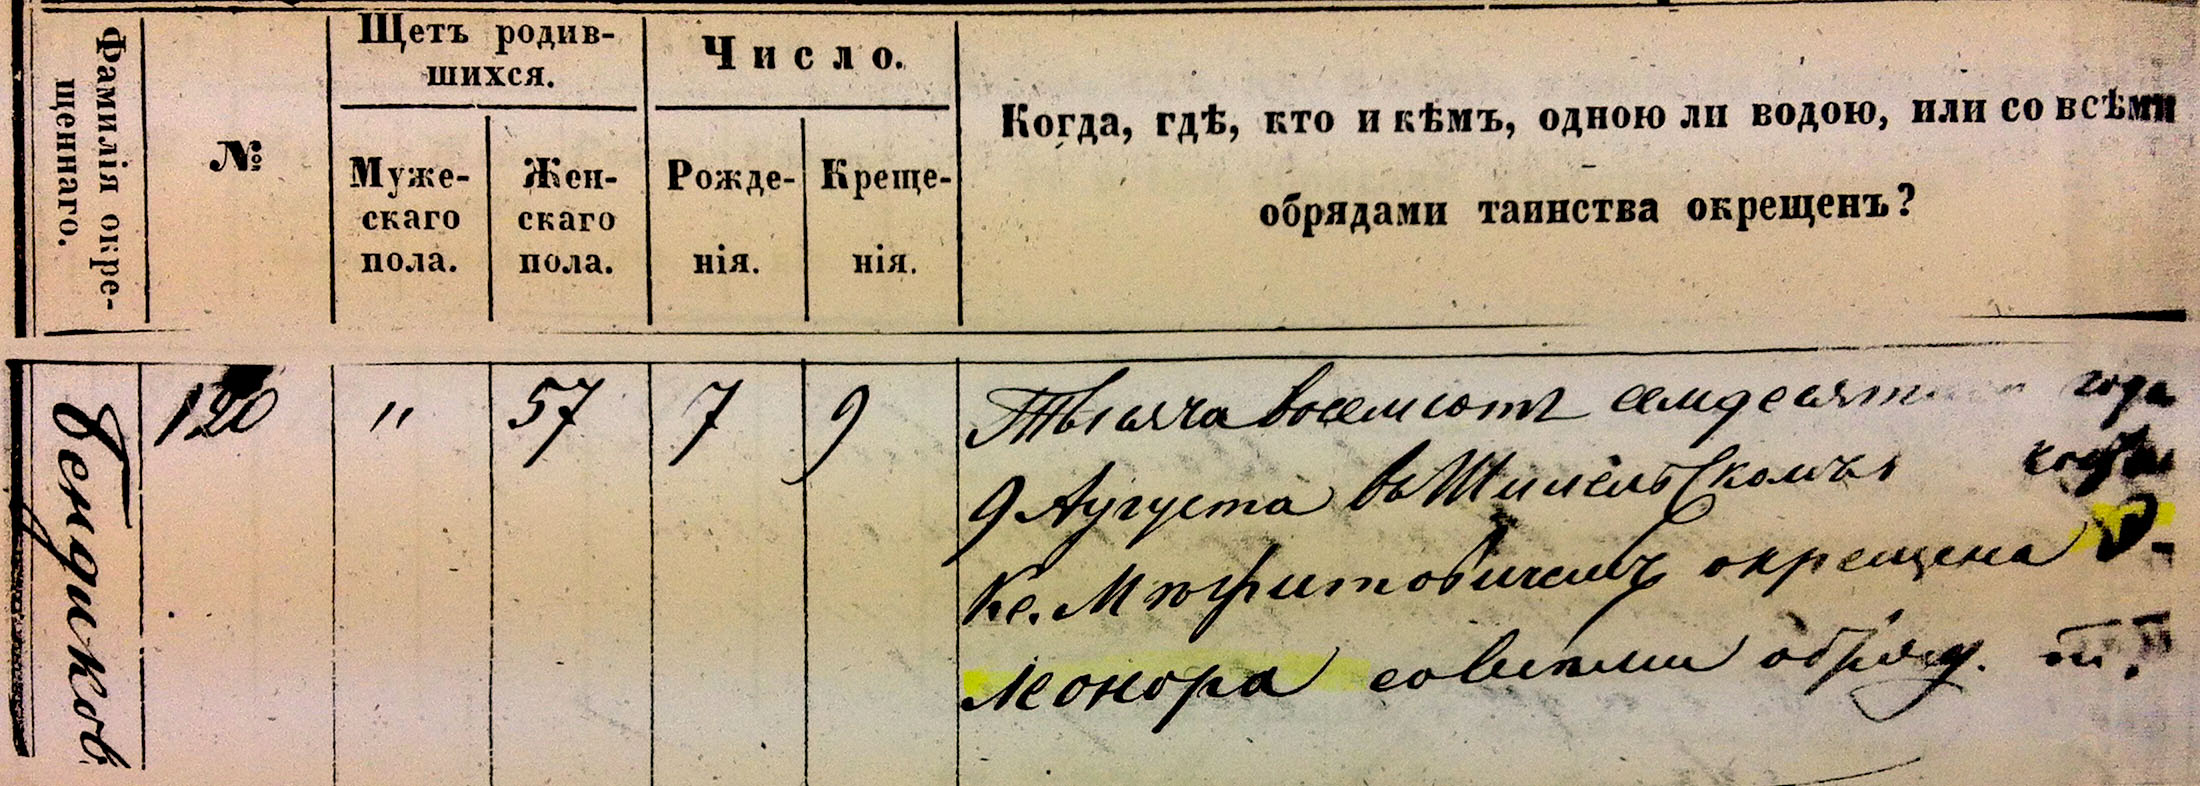 Фамилія окре-
щеннаго.
№
Щетъ родив-
шихся.
Муже-
скаго
пола.
Жен-
скаго
пола.
Число.
Рожде-
нія.
Креще-
нія.
Когда, гдѣ, кто и кѣмъ, одною ли водою, или со всѣми
обрядами таинства окрещенъ?
Бендиковъ
120
"
57
7
9
Тысяча восемсотъ семдесят года
9 Августа въ
Кс. окрещена
леонора со всѣми обряд.